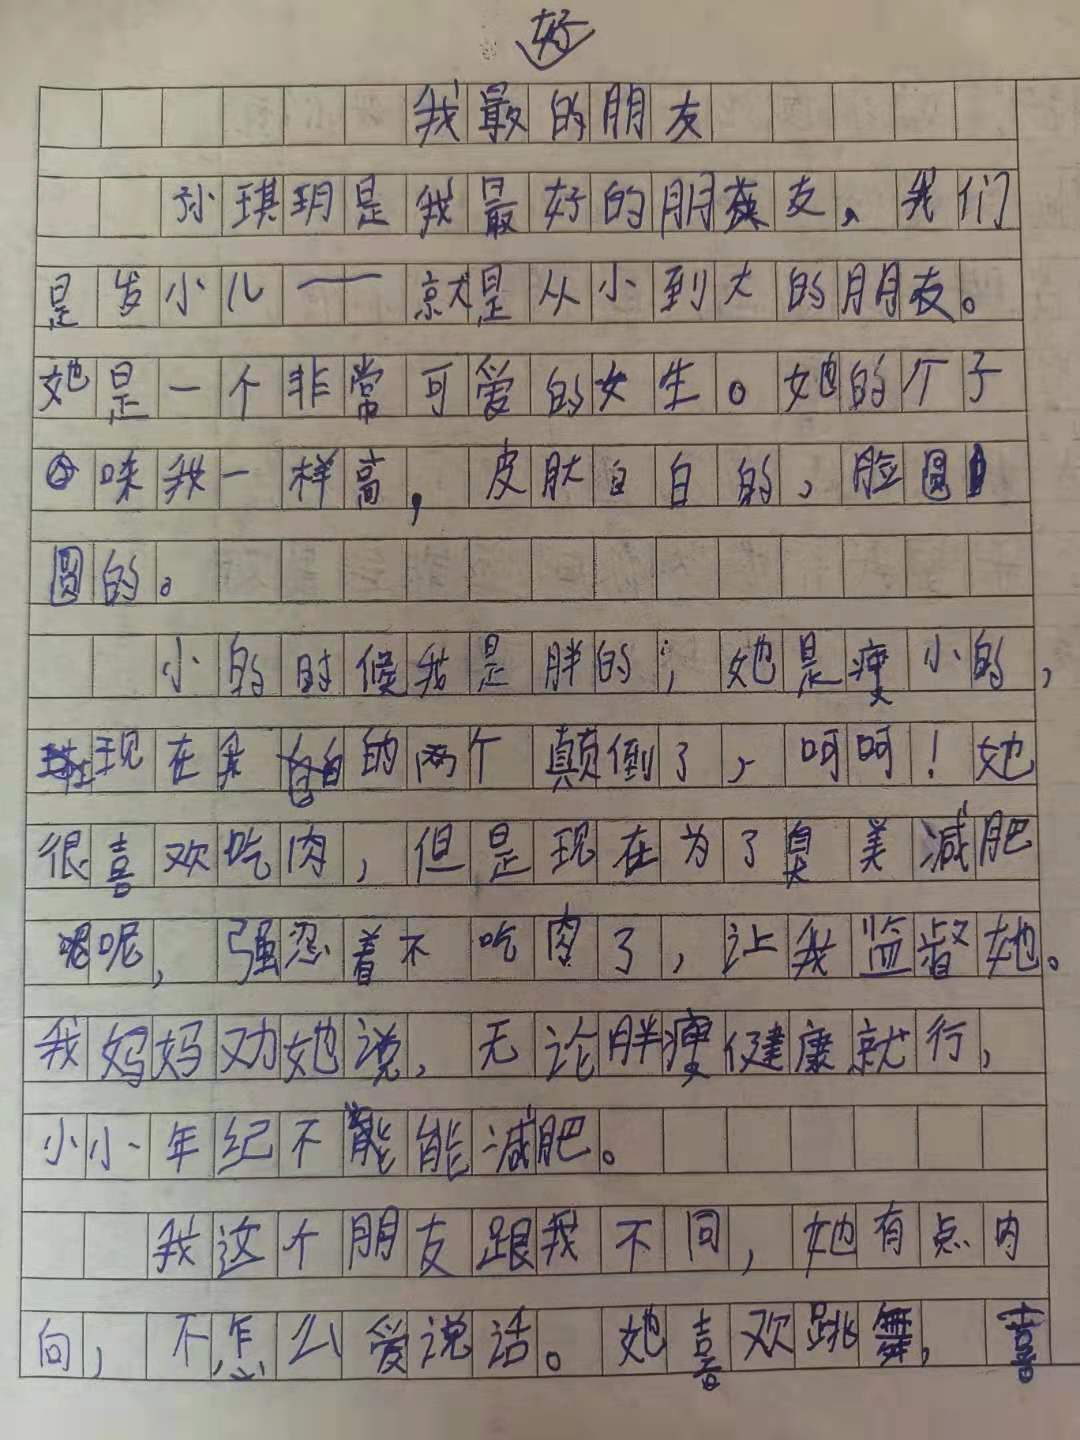 好
我最的朋友
孙琪玥是我最好的朋友、我们
是发小儿一就是从小到大的朋友。
她是一个非常可爱的女生。她的个子
咪我一样高，皮肤白白的，脸圆
圆的。
小的时候我是胖的；她是瘦小的，
现在我的两个颠倒了，呵呵！她
很喜欢吃肉，但是现在为了臭美减肥
呢，强忍着不吃肉了，让我监督她。
我妈妈劝她说，无论胖瘦健康就行，
小小年纪不能减肥。
我这个朋友跟我不同，她有点内
向，不怎么爱说话。她喜欢跳舞，